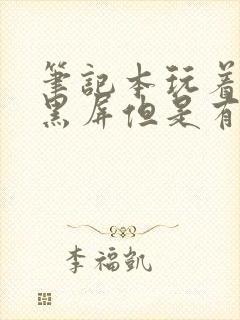 筆記本玩着
黑屏但是有
李福凱